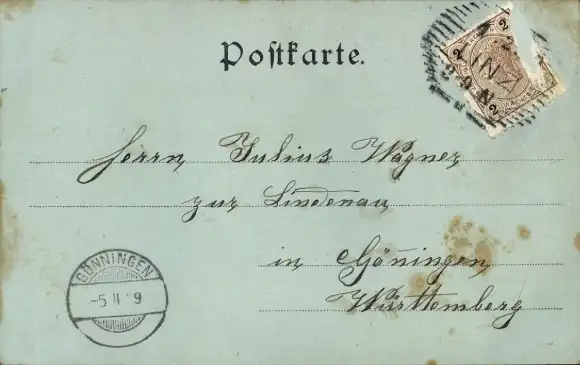 Postkarte.
2 2
2
LINZ
Herrn Julius Wagner
zur Lindenau
in Gönningen
Württemberg
GÖNNINGEN
-5 II 9